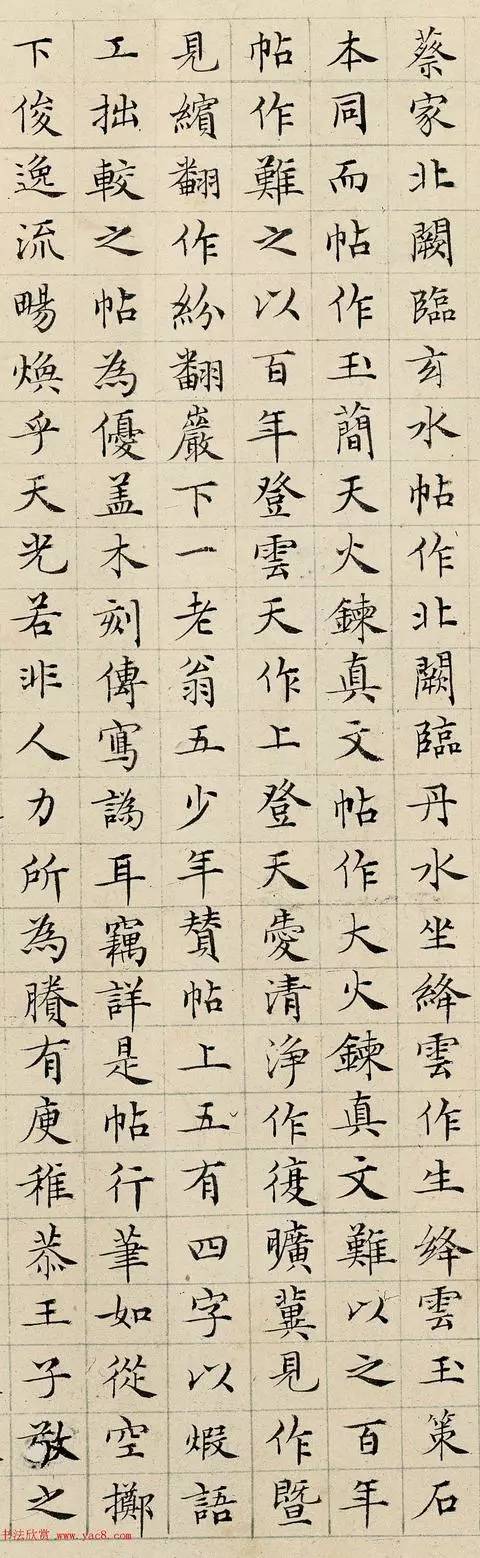 蔡家北闕臨玄水帖作北闕臨丹水坐絳雲作生絳雲玉策石
本同而帖作玉蕳天火鍊真文帖作大火鍊真文難以之百年
帖作難之以百年登雲天作上登天憂清浄作復曠冀見作暨
見繽翻作紛翻巖下一老翁五少年賛帖上五有四字以嘏語
工拙較之帖為優盖木刻傳寫譌耳竊詳是帖行筆如從空擲
下俊逸流暢煥乎天光若非人力所為賸有庾稚恭王子敬之
书法欣赏 www.yac8.com